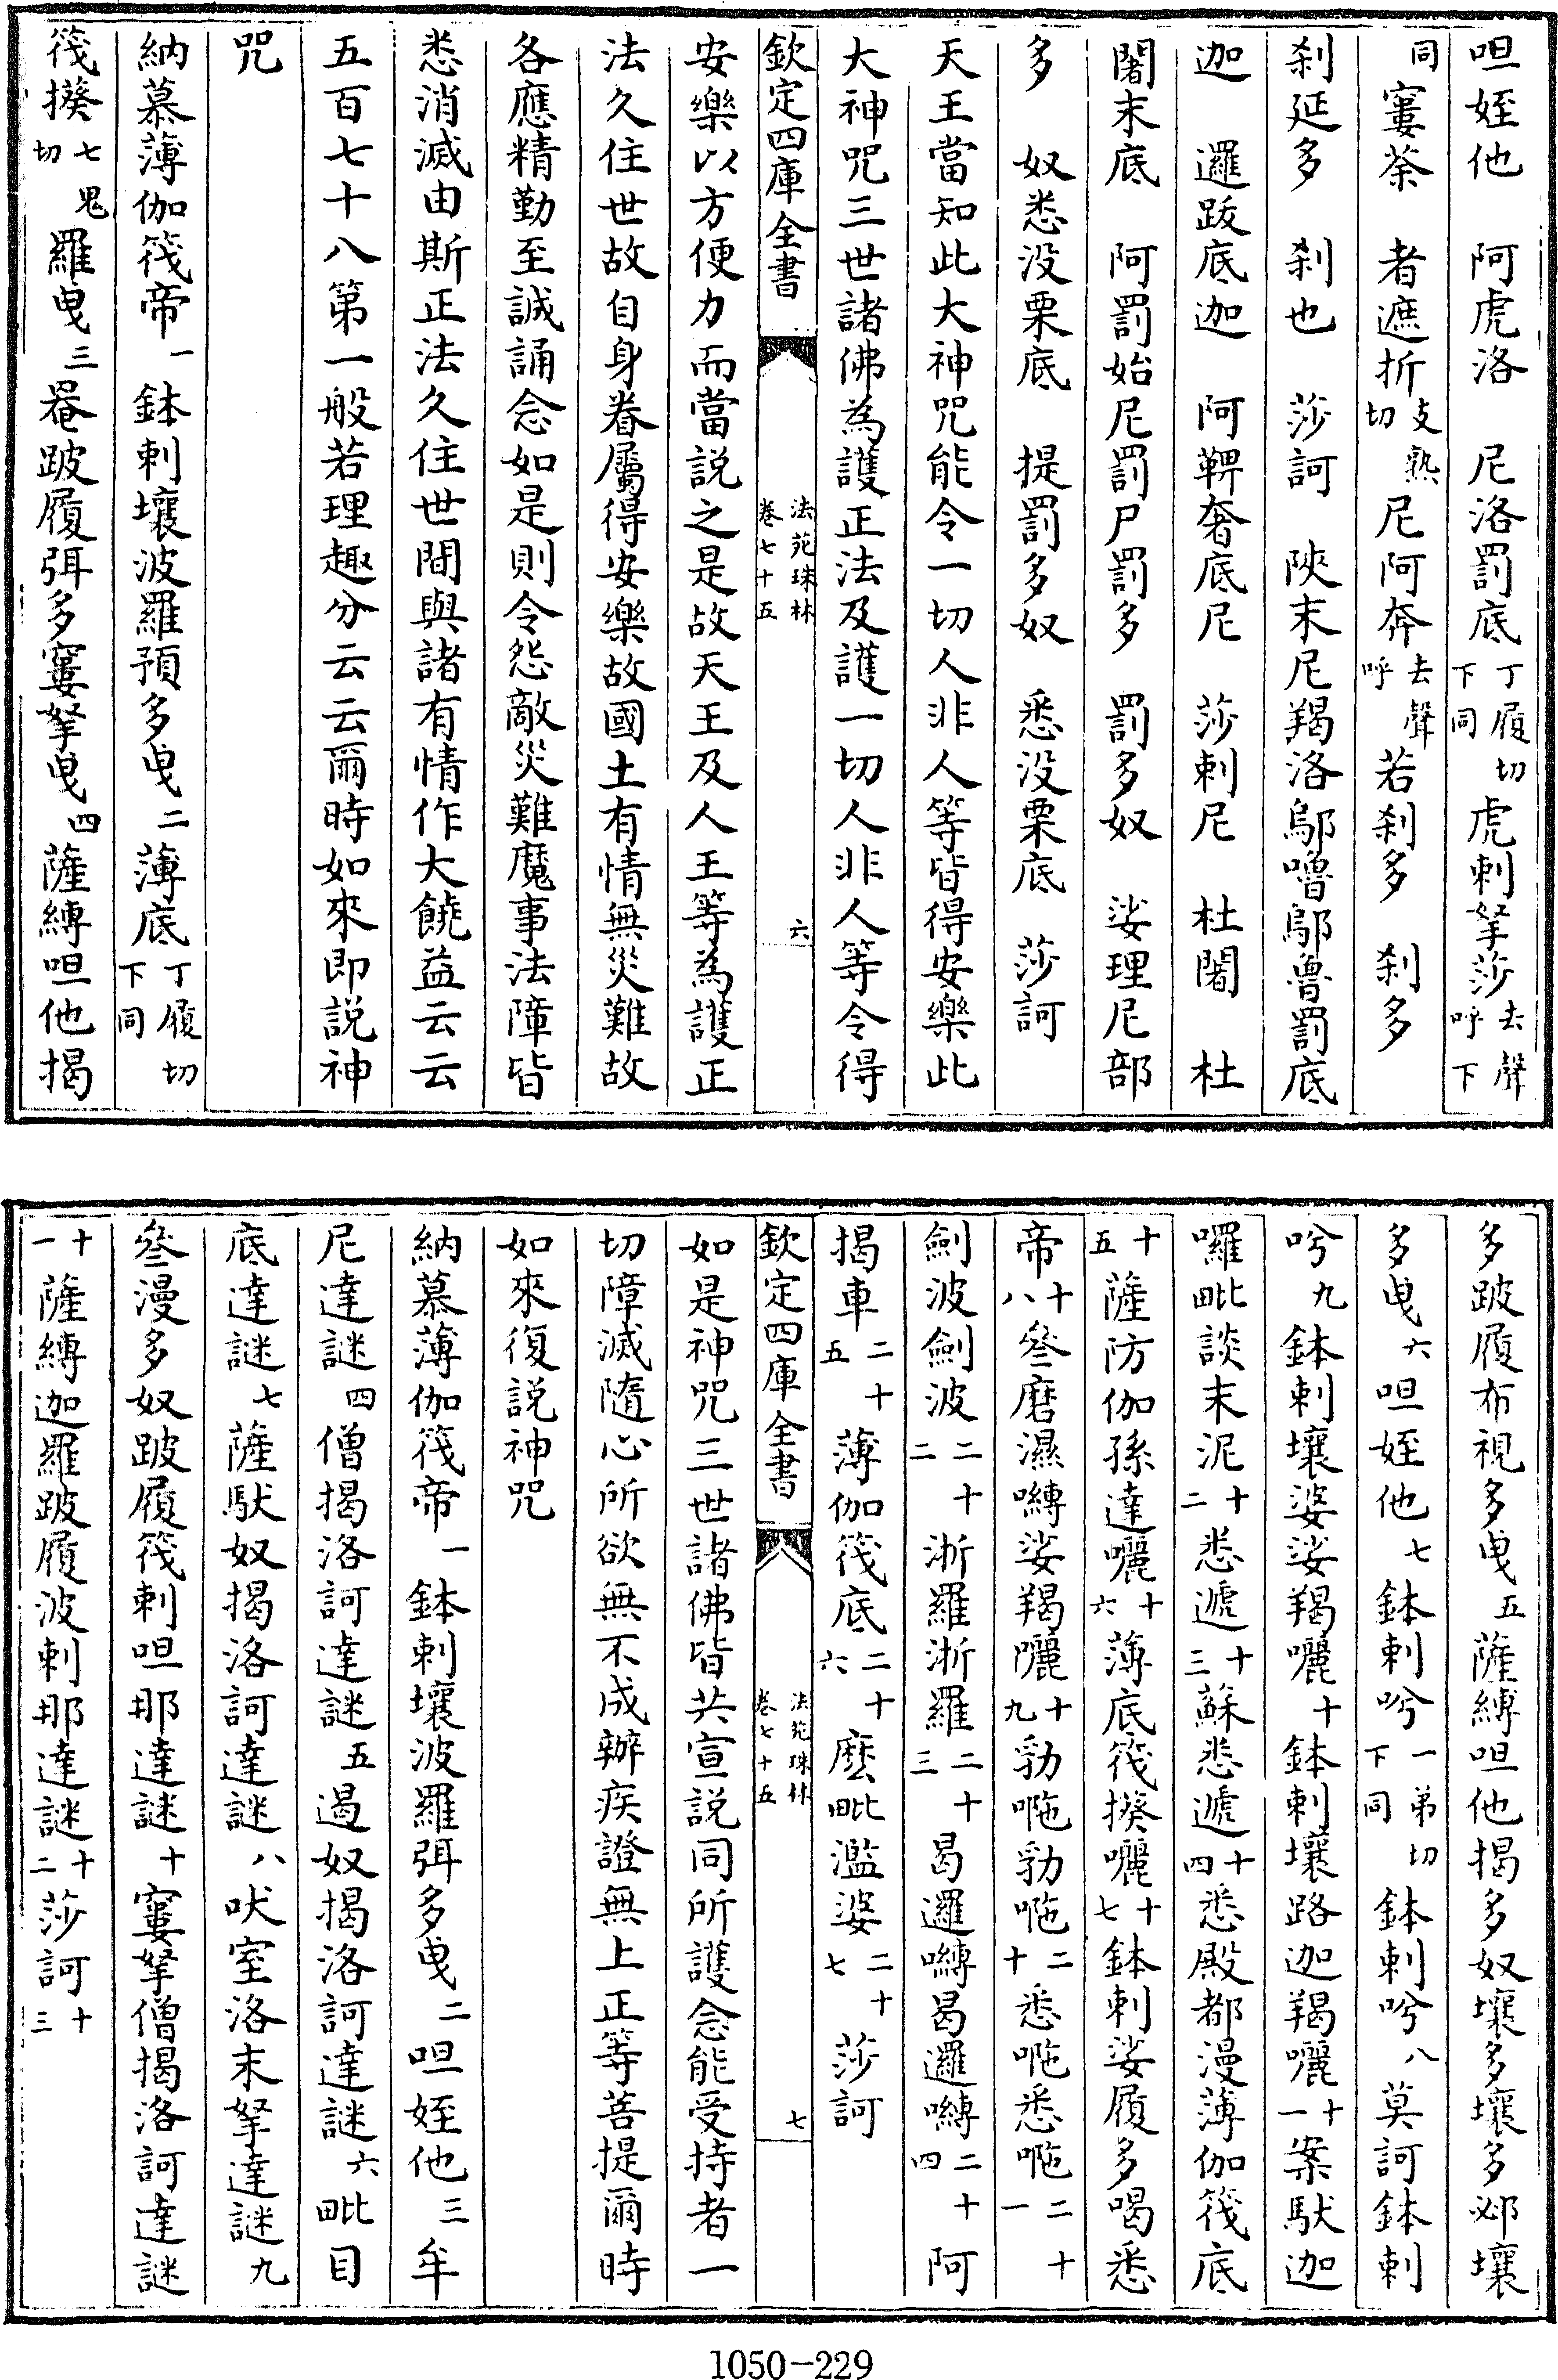 呾姪他　阿虎洛　尼洛罰底丁履切下同虎剌拏莎去聲呼下
同窶荼　者遮折支熱切尼阿奔去聲呼若剎多　剎多
剎延多　剎也　莎訶　陝末尼羯洛鄔嚕鄔魯罰底
迦　邏跋底迦　阿鞞奢底尼　莎剌尼　杜闍　杜
闍末底　阿罰始尼罰尸罰多　罰多奴　娑理尼部
多　奴悉没栗底　提罰多奴　悉没栗底　莎訶
天王當知此大神咒能令一切人非人等皆得安樂此
大神咒三世諸佛為護正法及護一切人非人等令得
欽定四庫全書　法苑珠林卷七十五　六
安樂以方便力而當説之是故天王及人王等為護正
法久住世故自身眷屬得安樂故國土有情無災難故
各應精勤至誠誦念如是則令怨敵災難魔事法障皆
悉消滅由斯正法久住世間與諸有情作大饒益云云
五百七十八第一般若理趣分云云爾時如來即説神
咒
納慕薄伽筏帝一鉢剌壤波羅預多曳二薄底丁履切下同
筏揆七鬼切羅曳三罨跛履弭多窶拏曳四薩縛呾他揭
多跛履布視多曳五薩縛呾他揭多奴壤多壤多邲壤
多曳六呾姪他七鉢剌吟一弟切下同鉢剌吟八莫訶鉢剌
吟九鉢剌壤婆娑羯囇十鉢剌壤路迦羯囇十一案馱迦
囉毗談末泥十二悉遞十三蘇悉遞十四悉殿都漫薄伽筏底
十五薩防伽孫達囇十六薄底筏揆囇十七鉢剌娑履多喝悉
帝十八叄磨濕嚩娑羯囇十九勃㖇勃㖇二十悉㖇悉㖇二十一
劍波劍波二十二浙羅浙羅二十三曷邏嚩曷邏嚩二十四阿
揭車二十五薄伽筏底二十六麽毗濫婆二十七莎訶
欽定四庫全書　法苑珠林卷七十五　七
如是神咒三世諸佛皆共宣説同所護念能受持者一
切障滅隨心所欲無不成辦疾證無上正等菩提爾時
如來復説神咒
納慕薄伽筏帝一鉢剌壤波羅弭多曳二呾姪他三牟
尼達謎四僧揭洛訶達謎五遏奴揭洛訶達謎六毗目
底達謎七薩馱奴揭洛訶達謎八吠室洛末拏達謎九
叄漫多奴跛履筏剌呾那達謎十窶拏僧揭洛訶達謎
十一薩縛迦羅跛履波剌那達謎十二莎訶十三
1050-229